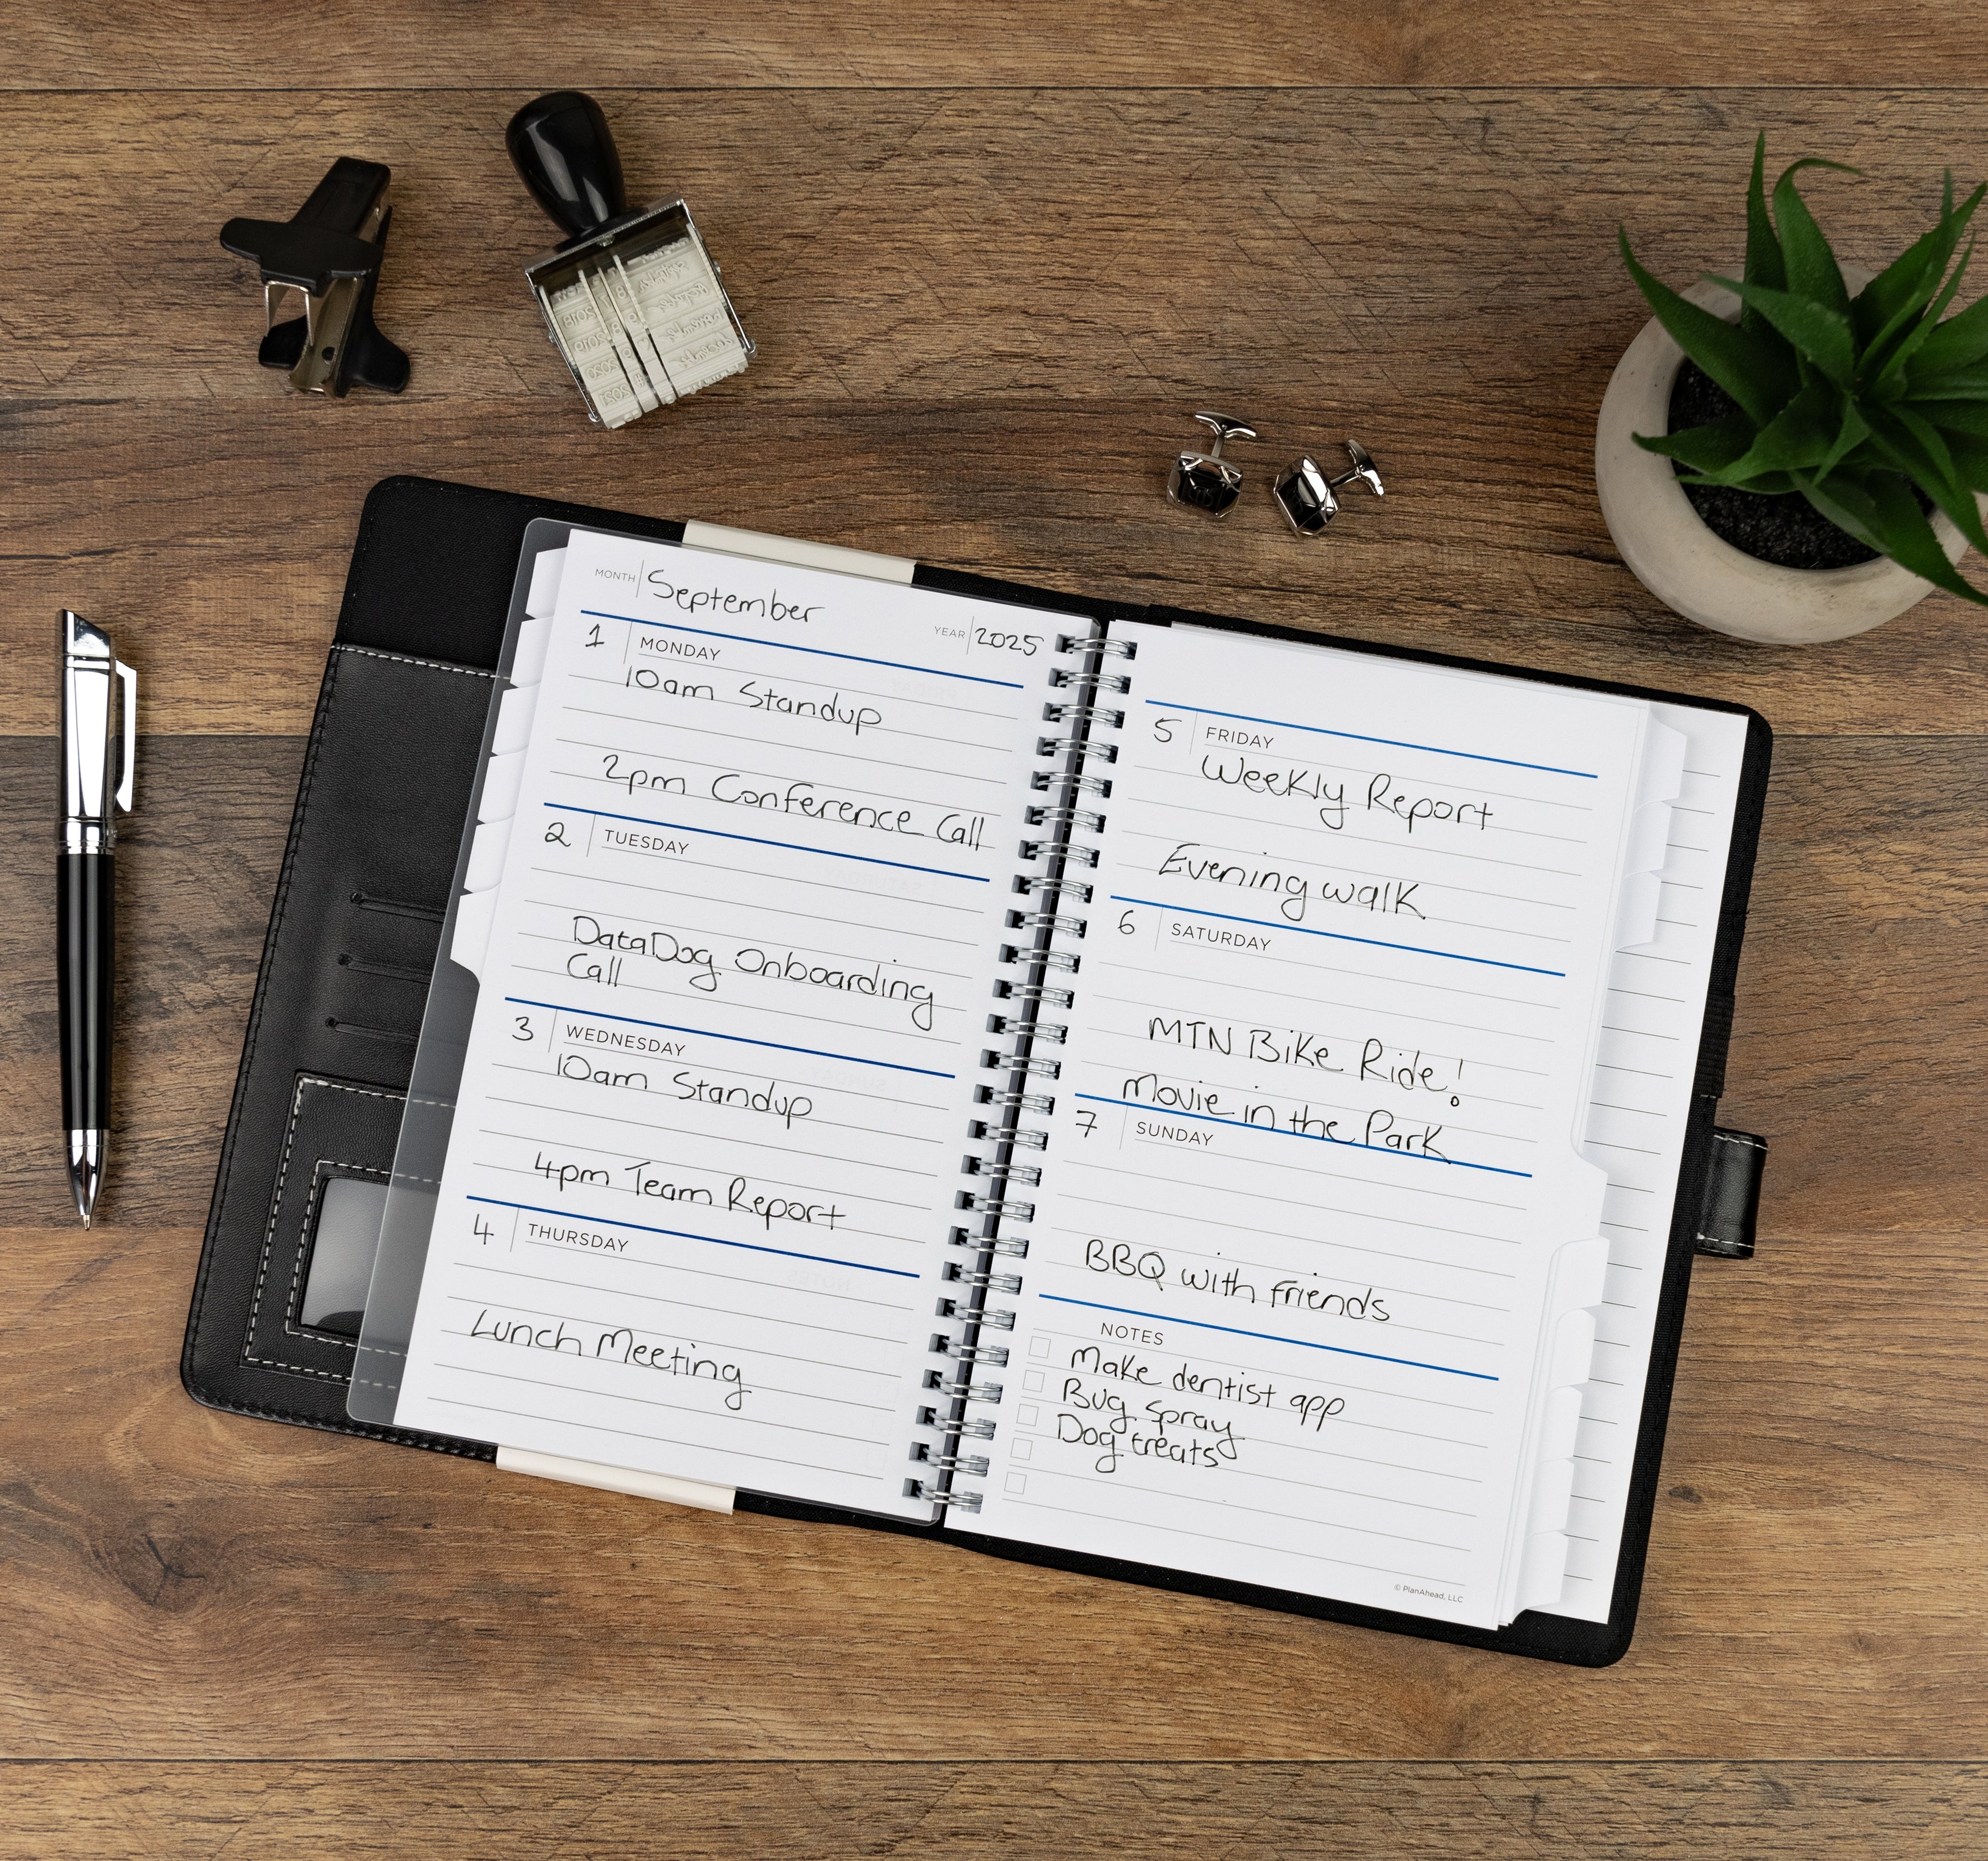 MONTH September
YEAR 2025
1 MONDAY
10am Standup
2pm Conference Call
2 TUESDAY
DataDog Onboarding
Call
3 WEDNESDAY
10am Standup
4pm Team Report
4 THURSDAY
Lunch Meeting
5 FRIDAY
Weekly Report
Evening walk
6 SATURDAY
MTN Bike Ride!
Movie in the Park
7 SUNDAY
BBQ with friends
NOTES
Make dentist app
Bug spray
Dog treats
© PlanAhead, LLC